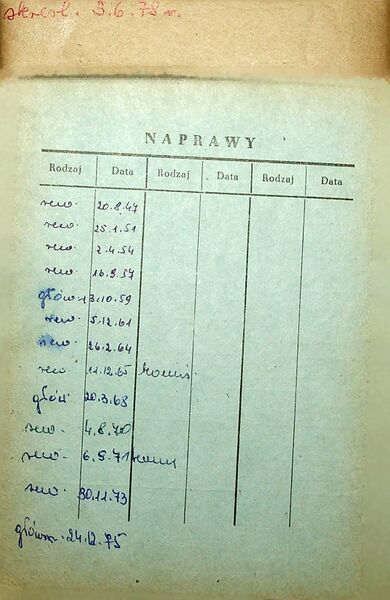 skreśl. 3.6.78 r.
NAPRAWY
Rodzaj Data Rodzaj Data Rodzaj Data
rew. 20.8.47
rew. 25.1.51
rew. 2.4.54
rew. 16.9.57
główn 3.10.59
rew. 5.12.61
rew. 26.2.64
rew. 11.12.65
główn 20.3.68
rew. 4.8.70
rew. 6.5.71
rew. 30.11.73
główn. 24.12.75